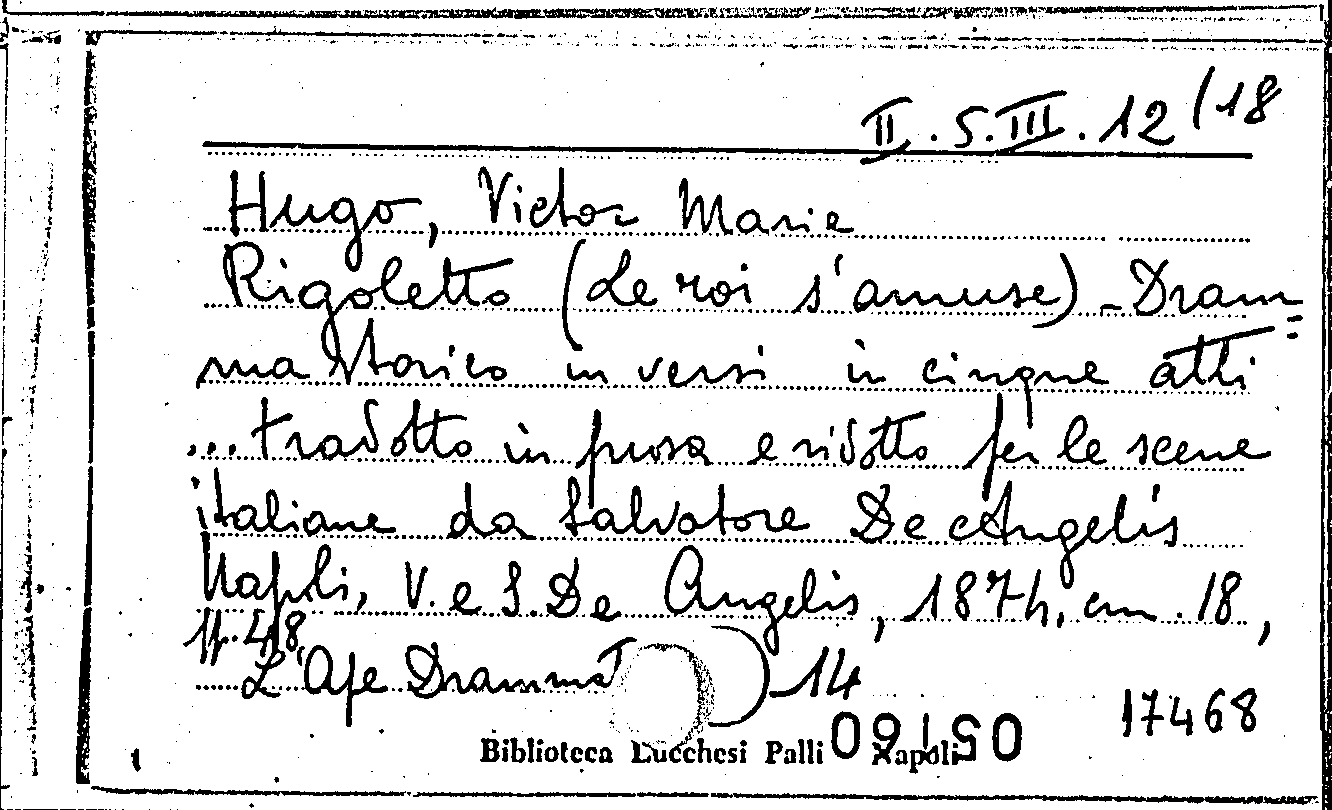 II.5.III.12/18
Hugo, Victor Marie
Rigoletto (Le roi s'amuse) - Dram=
ma storico in versi in cinque atti
...tradotto in prosa e ridotto per le scene
italiane da Salvatore De Angelis
Napoli, V. e S. De Angelis, 1874, cm. 18,
pp. 48
L'Ape Dramma ) 14
17468
Biblioteca Lucchesi Palli Napoli
1